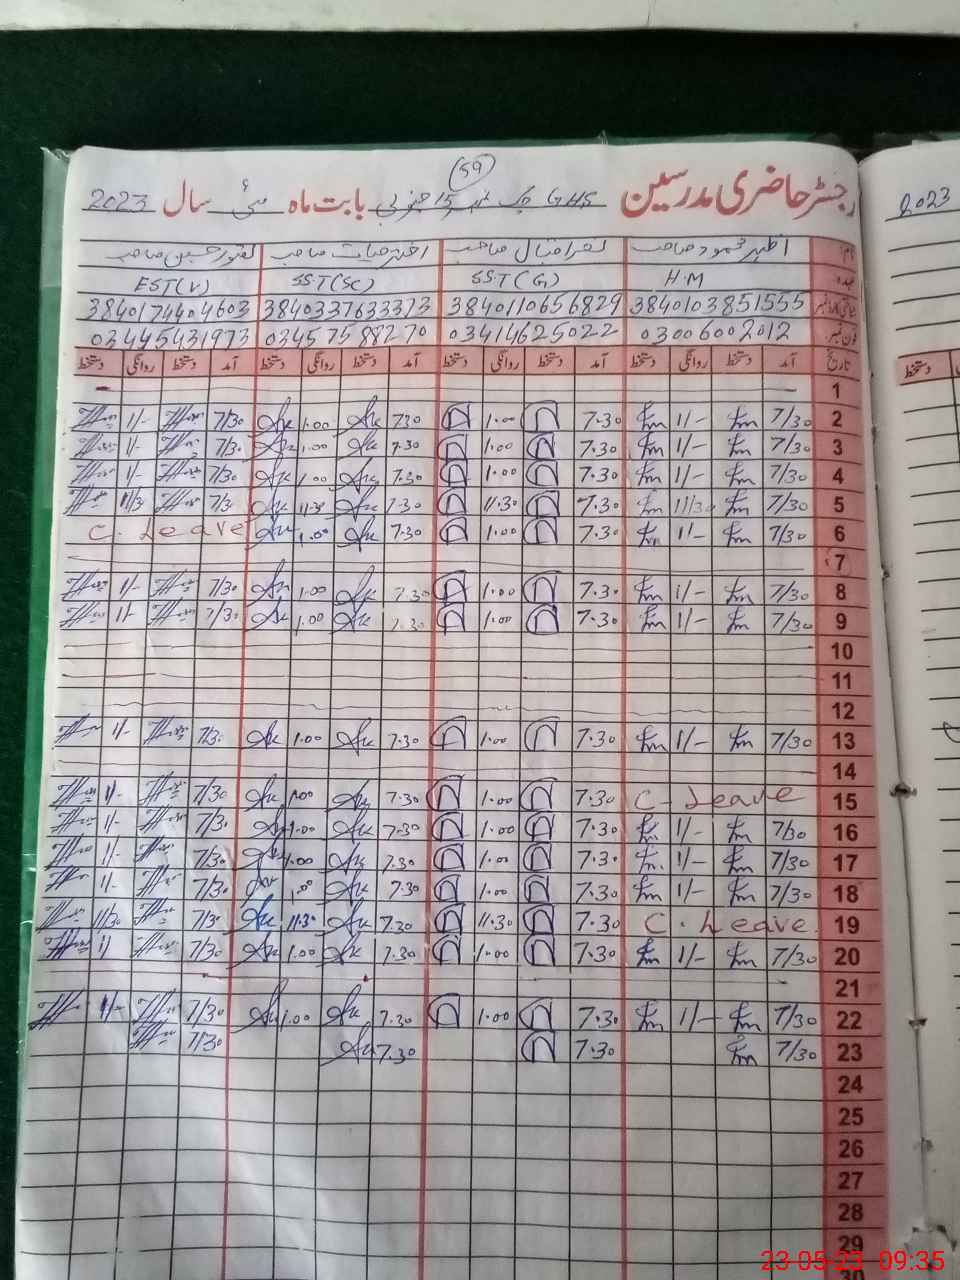 (59)
رجسٹر حاضری مدرسین GHS چک نمبر 15 جنوبی بابت ماہ مئی سال 2023
2023
اظہر محمود صاحب ظفر اقبال صاحب اختر حیات صاحب صاحب
عہدہ H.M SST(G) SST(SC) EST(V)
3840103851555 3840110656829 3840337633373 3840174404603
فون نمبر 03006002012 03414625022 03457588270 03445431973
تاریخ آمد دستخط روانگی دستخط آمد دستخط روانگی دستخط آمد دستخط روانگی دستخط آمد دستخط روانگی دستخط
دستخط
1
2 7/30 1/- 7.30 1.00 7.30 1.00 7/30 1/-
3 7/30 1/- 7.30 1.00 7.30 1.00 7/30 1/-
4 7/30 1/- 7.30 1.00 7.30 1.00 7/30 1/-
5 7/30 11/30 7.30 11.30 7.30 11.30 7/30 11/30
6 7/30 1/- 7.30 1.00 7.30 1.00 C. Leave
7
8 7/30 1/- 7.30 1.00 7.30 1.00 7/30 1/-
9 7/30 1/- 7.30 1.00 7.30 1.00 7/30 1/-
10
11
12
13 7/30 1/- 7.30 1.00 7.30 1.00 7/30 1/-
14
15 C-Leave 7.30 1.00 7.30 1.00 7/30 1/-
16 7/30 1/- 7.30 1.00 7.30 1.00 7/30 1/-
17 7/30 1/- 7.30 1.00 7.30 1.00 7/30 1/-
18 7/30 1/- 7.30 1.00 7.30 1.00 7/30 1/-
19 C. Leave. 7.30 11.30 7.30 11.30 7/30 11/30
20 7/30 1/- 7.30 1.00 7.30 1.00 7/30 1/
21
22 7/30 1/- 7.30 1.00 7.30 1.00 7/30 1/-
23 7/30 7.30 7.30 7/30
24
25
26
27
28
29
30
23-05-23 09:35